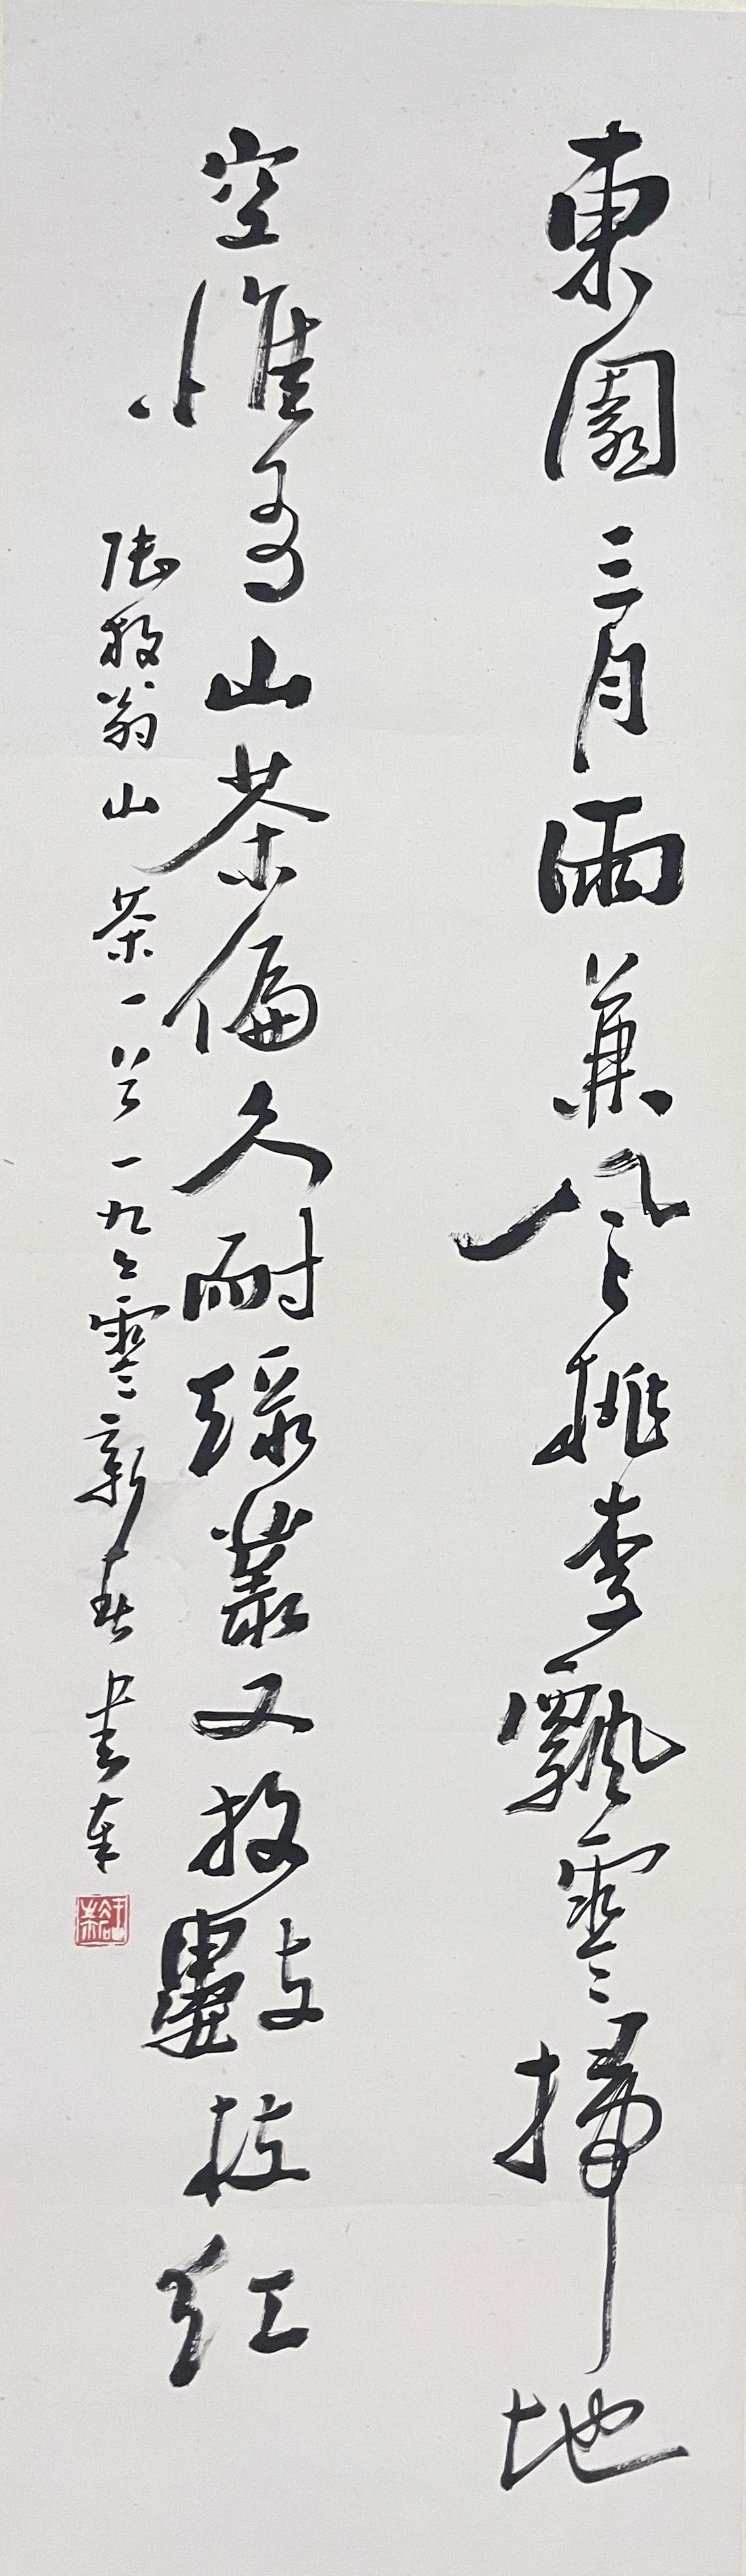 東園三月雨兼風桃李飄零掃地
空惟有山茶偏久耐綠叢又放數枝紅
陸放翁山茶一首一九七零新春書